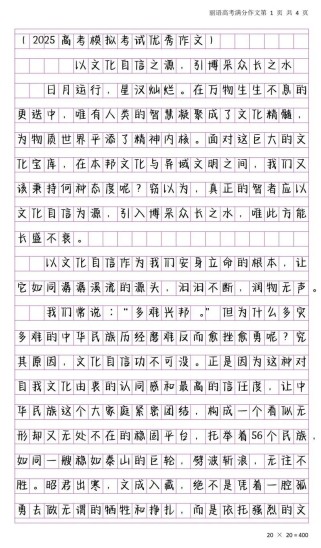 丽语高考满分作文第 1 页 共 4 页
（2025高考模拟考试优秀作文）
以文化自信之源，引博采众长之水
日月运行，星汉灿烂。在万物生生不息的
更迭中，唯有人类的智慧凝聚成了文化精髓，
为物质世界平添了精神内核。面对这巨大的文
化宝库，在本邦文化与异域文明之间，我们又
该秉持何种态度呢？窃以为，真正的智者应以
文化自信为源，引入博采众长之水，唯此方能
长盛不衰。
以文化自信作为我们安身立命的根本，让
它如同潺潺溪流的源头，汩汩不断，润物无声。
我们常说：“多难兴邦。”但为什么多灾
多难的中华民族历经磨难反而愈挫愈勇呢？究
其原因，文化自信功不可没。正是因为这种对
自我文化由衷的认同感和最高的信任度，让中
华民族这个大家庭紧密团结，构成一个看似无
形却又无处不在的稳固平台，托举着56个民族，
如同一艘稳如泰山的巨轮，劈波斩浪，无往不
胜。昭君出塞，文成入藏，绝不是凭着一腔孤
勇去做无谓的牺牲和挣扎，而是依托强烈的文
20 × 20 = 400